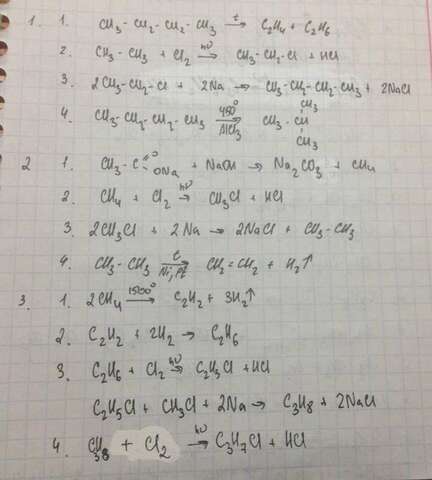 1. 1. CH₃ - CH₂ - CH₂ - CH₃ →(t) C₂H₄ + C₂H₆
2. CH₃ - CH₃ + Cl₂ →(hν) CH₃ - CH₂ - Cl + HCl
3. 2CH₃ - CH₂ - Cl + 2Na → CH₃ - CH₂ - CH₂ - CH₃ + 2NaCl
4. CH₃ - CH₂ - CH₂ - CH₃ →(450°, AlCl₃) CH₃ - CH(CH₃) - CH₃
2 1. CH₃ - C(=O)ONa + NaOH → Na₂CO₃ + CH₄
2. CH₄ + Cl₂ →(hν) CH₃Cl + HCl
3. 2CH₃Cl + 2Na → 2NaCl + CH₃ - CH₃
4. CH₃ - CH₃ →(t, Ni, Pt) CH₂ = CH₂ + H₂↑
3. 1. 2CH₄ →(1500°) C₂H₂ + 3H₂↑
2. C₂H₂ + 2H₂ → C₂H₆
3. C₂H₆ + Cl₂ →(hν) C₂H₅Cl + HCl
C₂H₅Cl + CH₃Cl + 2Na → C₃H₈ + 2NaCl
4. C₃H₈ + Cl₂ →(hν) C₃H₇Cl + HCl